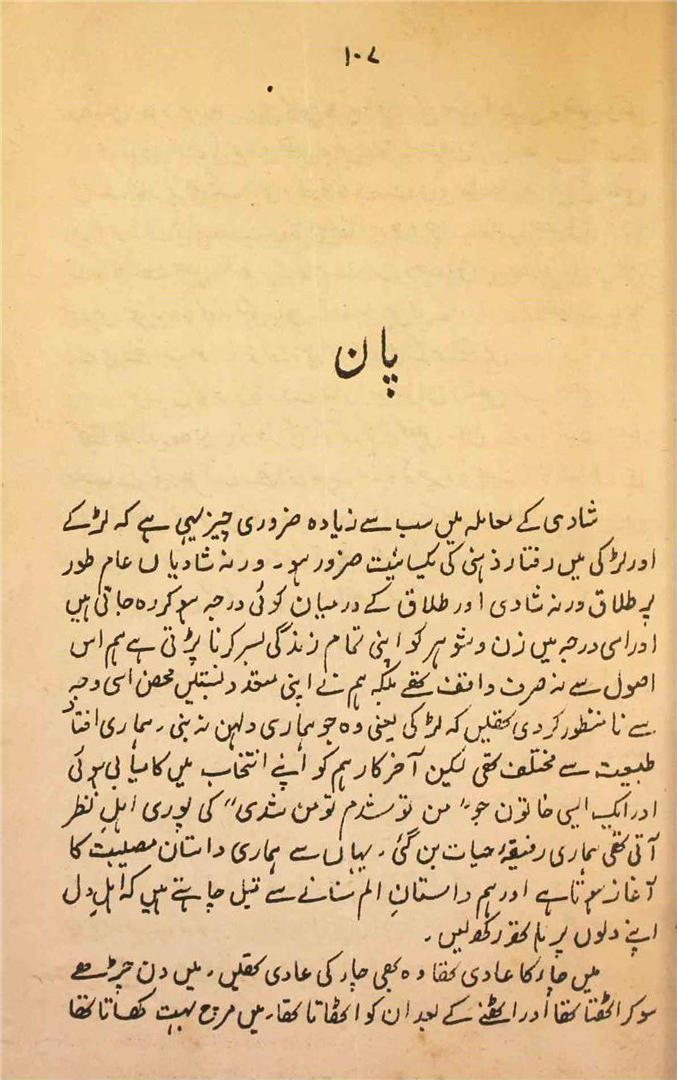 ۱۰۷
پان
شادی کے معاملہ میں سب سے زیادہ ضروری چیز یہی ہے کہ لڑکے
اور لڑکی میں رفتار ذہنی کی یکسانیت ضرور ہو۔ ورنہ شادیاں عام طور
پر طلاق ورنہ شادی اور طلاق کے درمیان کوئی درجہ ہو کر رہ جاتی ہیں
اور اسی درجہ میں زن و شوہر کو اپنی تمام زندگی بسر کرنا پڑتی ہے ہم اس
اصول سے نہ صرف واقف تھے بلکہ ہم نے اپنی متعدد نسبتیں محض اسی وجہ
سے نامنظور کر دی تھیں کہ لڑکی یعنی وہ جو ہماری دلہن نہ بنی۔ ہماری افتادِ
طبیعت سے مختلف تھی لیکن آخر کار ہم کو اپنے انتخاب میں کامیابی ہوئی
اور ایک ایسی خاتون جو "من تو شدم تو من شدی" کی پوری اہل نظر
آتی تھی ہماری رفیقۂ حیات بن گئی۔ یہاں سے ہماری داستان مصیبت کا
آغاز ہوتا ہے اور ہم داستانِ الم سنانے سے قبل چاہتے ہیں کہ اہلِ دل
اپنے دلوں پر ہاتھ رکھ لیں۔
میں چاء کا عادی تھا وہ بھی چاء کی عادی تھیں۔ میں دن چڑھے
سو کر اٹھتا تھا اور اٹھنے کے بعد ان کو اٹھاتا تھا۔ میں مرچ بہت کھاتا تھا